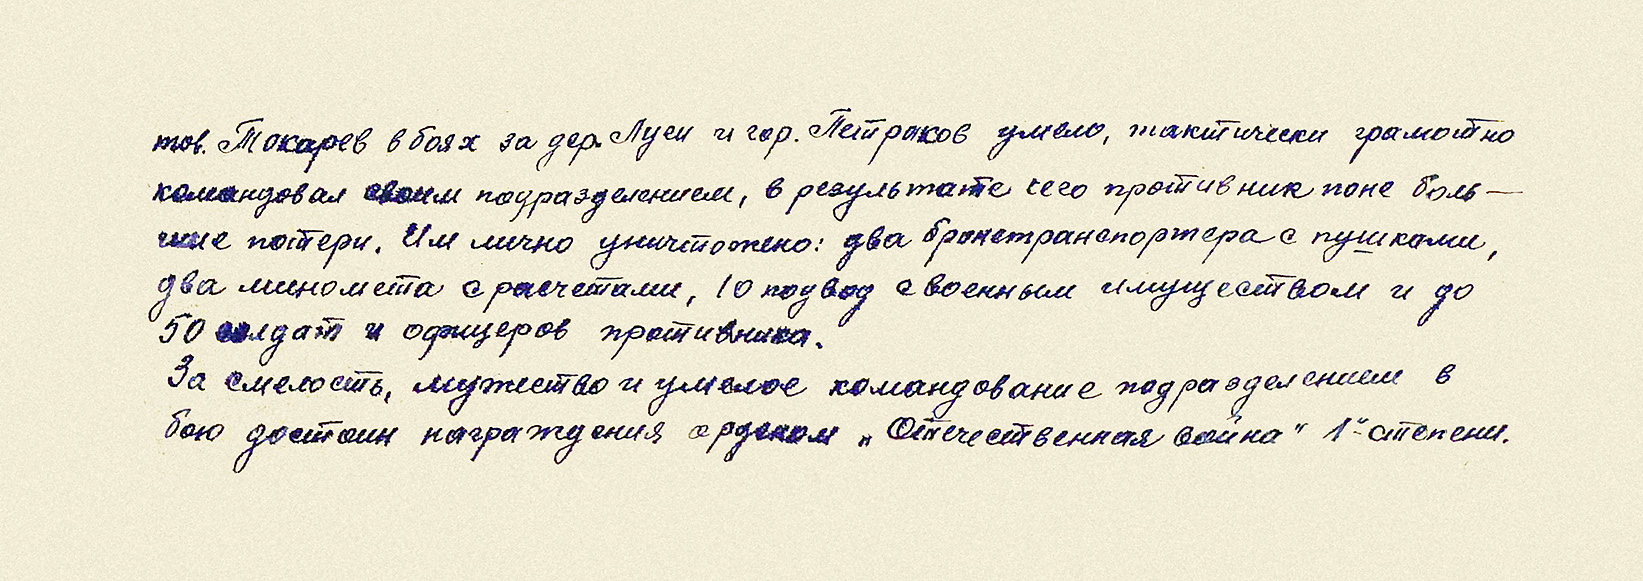 тов. Токарев в боях за дер. Луси и гор. Петраков умело, тактически грамотно
командовал своим подразделением, в результате чего противник поне боль-
шие потери. Им лично уничтожено: два бронетранспортера с пушками,
два миномета с расчетами, 10 подвод с военным имуществом и до
50 солдат и офицеров противника.
За смелость, мужество и умелое командование подразделением в
бою достоин награждения орденом „Отечественная война" 1й степени.